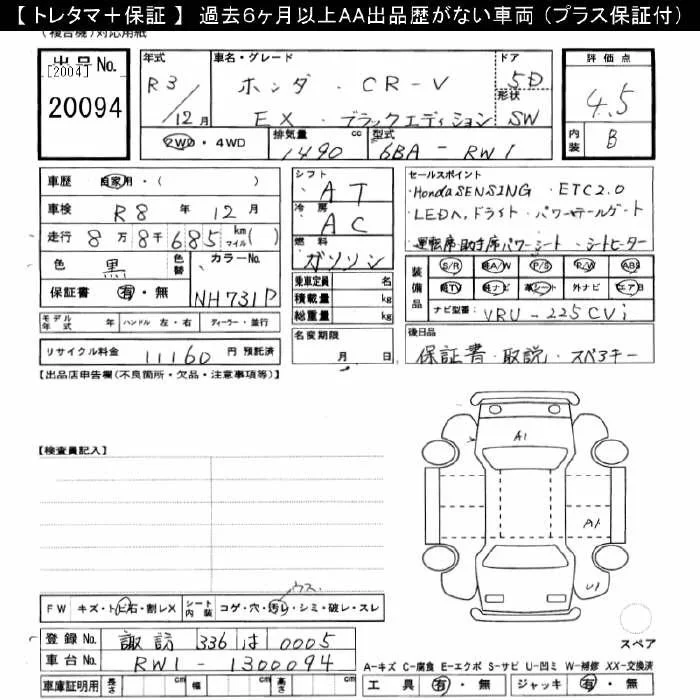 【 トレタマ＋保証 】 過去6ヶ月以上AA出品歴がない車両 （プラス保証付）
（複合機）対応用紙
出品No.
[2004]
20094
年式
R3／12月
車名・グレード
ホンダ・CR-V
EX・ブラックエディション
ドア
5D
形状
SW
評価点
4.5
内装
B
2WD・4WD
排気量
1490 cc
型式
6BA-RW1
車歴 自家用・( )
車検 R8 年 12 月
走行 8 万 8 千 685 km マイル( )
色 黒 色替
カラーNo.
NH731P
保証書 有・無
モデル年式 年 ハンドル 左・右 ディーラー・並行
リサイクル料金 11160 円 預託済
シフト
AT
冷房
AC
燃料
ガソリン
乗車定員 名
積載量 kg
総重量 kg
名変期限
月 日
セールスポイント
・Honda SENSING ・ETC2.0
・LEDヘッドライト・パワーテールゲート
・運転席・助手席パワーシート・シートヒーター
装備品 S/R 純A/W P/S P/W ABS
純TV 純ナビ 革シート 外ナビ エアB
ナビ型番： VRU-225CVi
後日品
保証書・取説・スペアキー
【出品店申告欄(不良箇所・欠品・注意事項等)】
【検査員記入】
A1
A1
U1
ウス
FW キズ・トビ石・割レX シート内装 コゲ・穴・汚レ・シミ・破レ・スレ
登録No. 諏訪 336 は 0005
車台No. RW1-1300094
車庫証明用 長さ cm 幅 cm 高さ cm
スペア
A-キズ C-腐食 E-エクボ S-サビ U-凹ミ W-補修 XX-交換済
工具 有・無 ジャッキ 有・無